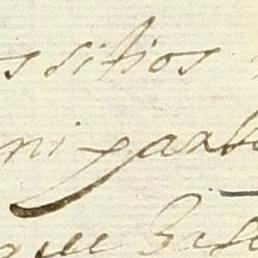 s sitios
ni parte
que